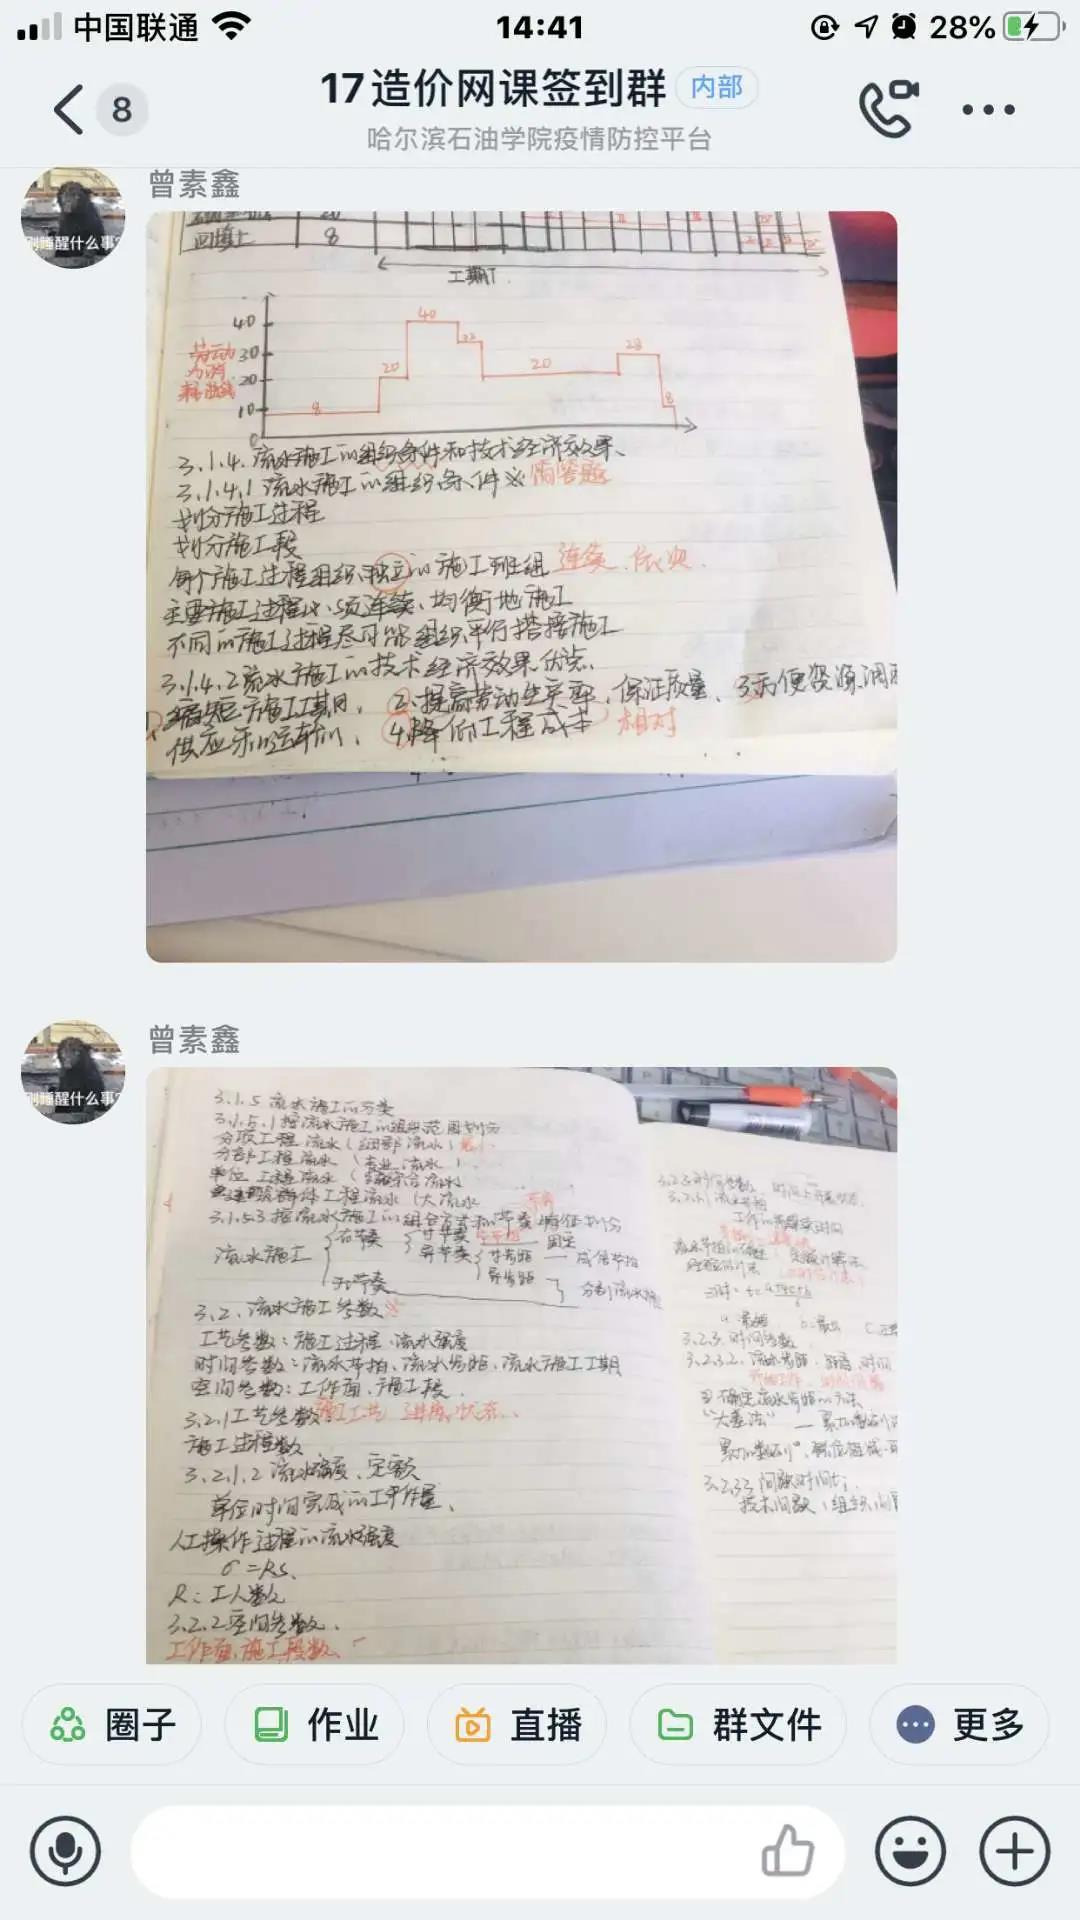 中国联通
14:41
28%
8
17造价网课签到群
内部
哈尔滨石油学院疫情防控平台
曾素鑫
刚睡醒什么事?
回填土 8
工期T
40
30
20
10
0
劳动
力消
耗曲线
8
20
40
20
28
8
3.1.4.流水施工的组织条件和技术经济效果、
3.1.4.1流水施工的组织条件※简答题
划分施工过程
划分施工段
每个施工过程组织独立的施工班组 连续、依次.
主要施工过程必须连续、均衡地施工
不同的施工过程尽可能组织平行搭接施工
3.1.4.2流水施工的技术经济效果优点、
1.缩短施工工期、2.提高劳动生产率,保证质量、3方便资源调
供应 、4降低工程成本 相对
曾素鑫
刚睡醒什么事?
3.1.5 流水施工的分类
3.1.5.1按流水施工的组织范围划分
分项工程流水(细部流水)最小
分部工程流水(专业流水)
单位工程流水(综合流水)
群体工程流水(大流水
节奏
3.1.5.3按流水施工的组合方式和节奏特征划分
流水施工
有节奏
等节奏
固定
异节奏
等步距 — 成倍节拍
异步距
无节奏
分别流水
3.2.流水施工参数※
工艺参数:施工过程、流水强度
时间参数:流水节拍、流水步距、流水施工工期
空间参数:工作面、施工段.
3.2.1工艺参数 施工工艺 进展状态、
施工过程数
3.2.1.2流水强度、定额
单位时间完成的工作量、
人工操作过程的流水强度
σ=RS、
R:工人数
3.2.2空间参数、
工作面、施工段数、
3.2.3时间参数
工作的持续时间
3.2.3.时间参数
3.2.3.2.流水步距
确定流水步距的方法
"大差法"
3.2.3.3 间歇时间
技术间歇、组织间
圈子
作业
直播
群文件
更多